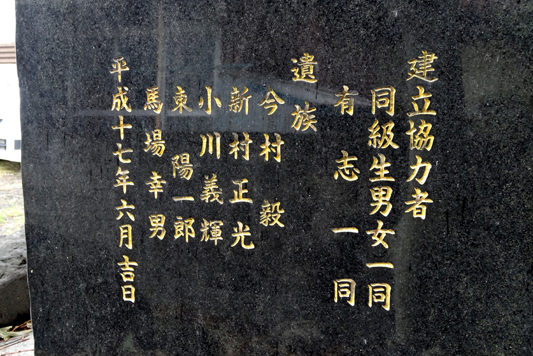 建立協力者
同級生男女一同
有志一同
遺族
今村毅
新村正光
小川義輝
東陽一郎
馬場幸男
平成十七年六月吉日